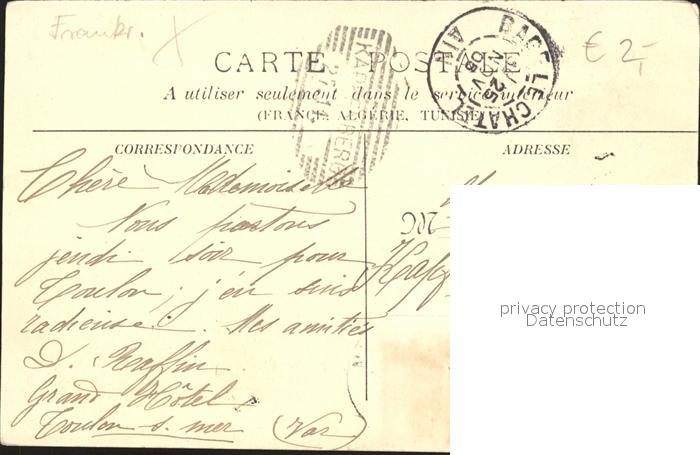 Frankr.
€ 2,-
CARTE POSTALE
A utiliser seulement dans le service intérieur
(FRANCE, ALGÉRIE, TUNISIE)
BAGE-LE-CHATEL
AIN
25
CORRESPONDANCE
ADRESSE
Chère Mademoiselle
Nous partons
jeudi soir pour
Toulon; j'en suis
radieuse. Mes amitiés
D. Raffin
Grand Hôtel
Toulon s. mer (Var)
privacy protection
Datenschutz